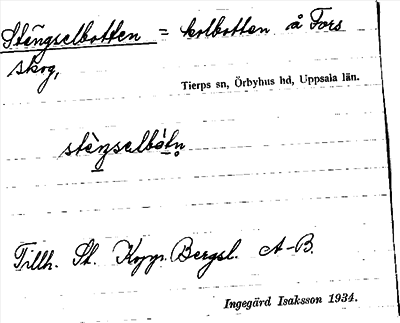 Stängselbotten = kolbotten å Fors
skog,
Tierps sn, Örbyhus hd, Uppsala län.
Tillh. St. Kopp. Bergsl. A-B.
Ingegärd Isaksson 1934.